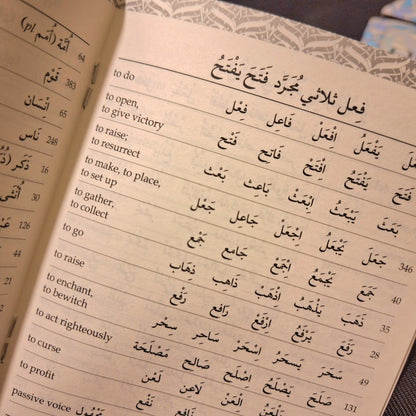 أُمَّة (أُمَم pl) 64
قَوْم 383
إِنْسَان 65
نَاس 248
ذَكَر 16
أُنْثَى 30
126
44
21
فعل ثلاثي مُجَرَّد فَتَحَ يَفْتَحُ
يَفْعَلُ اِفْعَلْ فَاعِل فِعْل to do
فَتَحَ يَفْتَحُ اِفْتَحْ فَاتِح فَتْح to open,
to give victory
بَعَثَ يَبْعَثُ اِبْعَثْ بَاعِث بَعْث to raise;
to resurrect
346 جَعَلَ يَجْعَلُ اِجْعَلْ جَاعِل جَعْل to make, to place,
to set up
40 جَمَعَ يَجْمَعُ اِجْمَعْ جَامِع جَمْع to gather,
to collect
35 ذَهَبَ يَذْهَبُ اِذْهَبْ ذَاهِب ذَهَاب to go
28 رَفَعَ يَرْفَعُ اِرْفَعْ رَافِع رَفْع to raise
49 سَحَرَ يَسْحَرُ اِسْحَرْ سَاحِر سِحْر to enchant,
to bewitch
131 صَلَحَ يَصْلَحُ اِصْلَحْ صَالِح مَصْلَحَة to act righteously
يَلْعَنُ اِلْعَنْ لَاعِن لَعْن to curse
نَافِع نَفْع to profit
passive voice